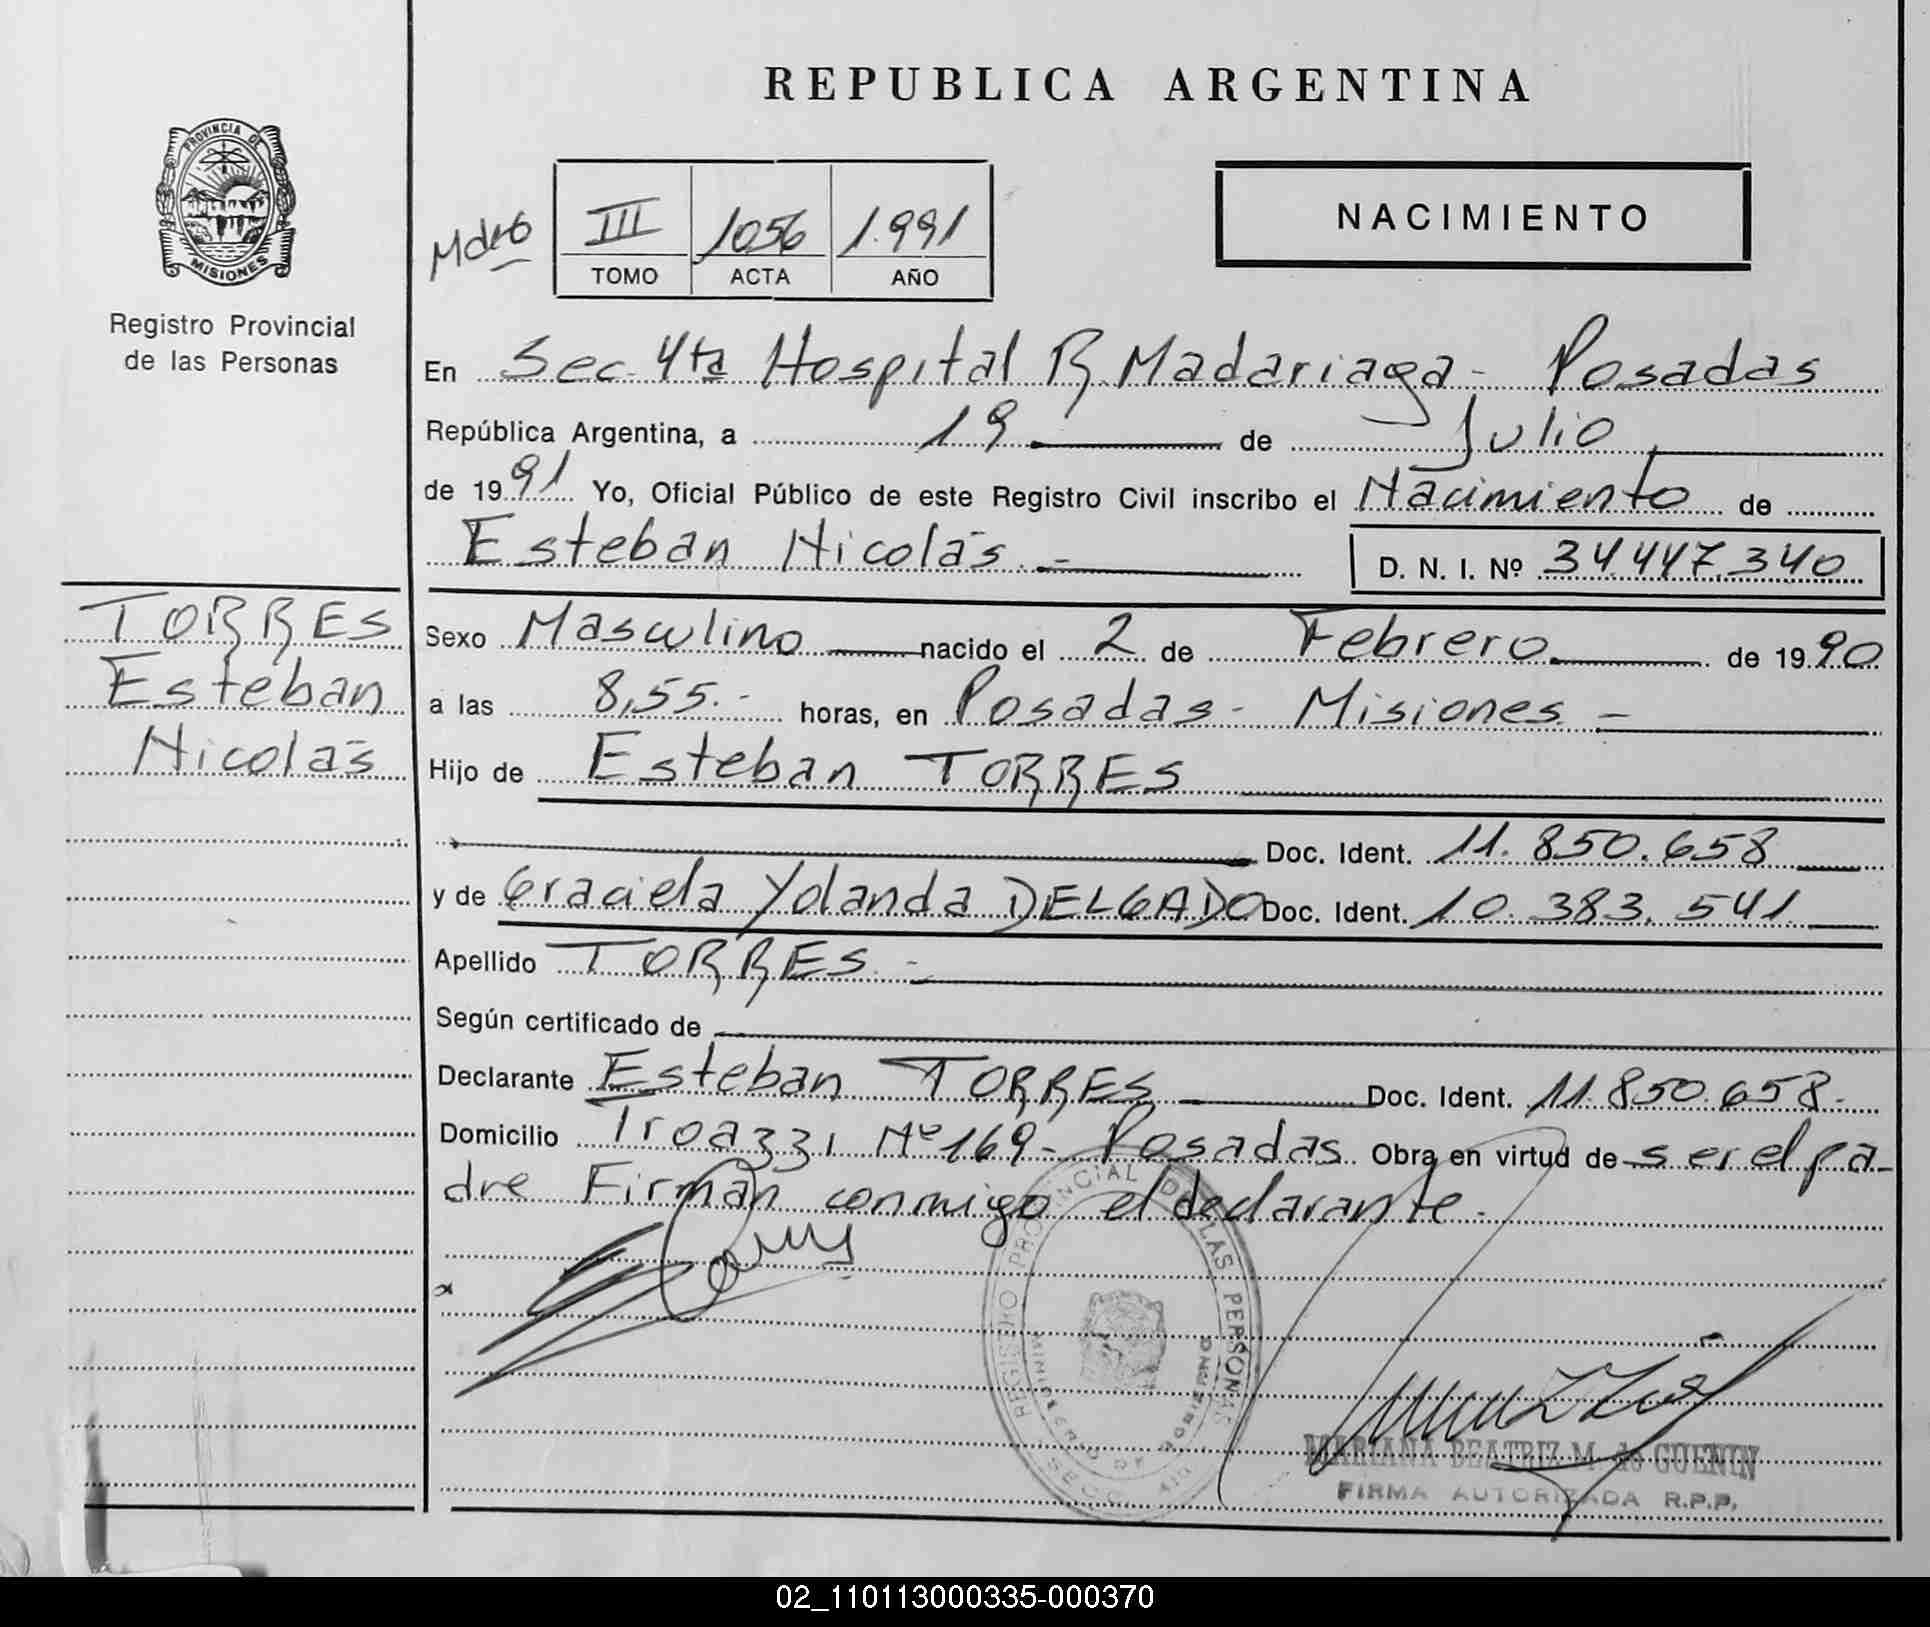 REPUBLICA ARGENTINA
PROVINCIA DE
MISIONES
Registro Provincial
de las Personas
III 1056 1.991
TOMO ACTA AÑO
NACIMIENTO
En Sec. 4ta Hospital R. Madariaga - Posadas
República Argentina, a 19 de Julio
de 1991 Yo, Oficial Público de este Registro Civil inscribo el Nacimiento de
Esteban Nicolás.- D. N. I. Nº 34.447.340
TORRES
Esteban
Nicolás
Sexo Masculino nacido el 2 de Febrero de 1990
a las 8,55.- horas, en Posadas - Misiones -
Hijo de Esteban TORRES
Doc. Ident. 11.850.658
y de Graciela Yolanda DELGADO Doc. Ident. 10.383.541
Apellido TORRES.-
Según certificado de
Declarante Esteban TORRES Doc. Ident. 11.850.658.-
Domicilio Troazzi Nº 169 - Posadas Obra en virtud de ser el pa-
dre Firman conmigo el declarante.-
REGISTRO PROVINCIAL DE LAS PERSONAS
MINISTERIO DE GOBIERNO
MARIANA BEATRIZ M. de GUENIN
FIRMA AUTORIZADA R.P.P.
02_110113000335-000370